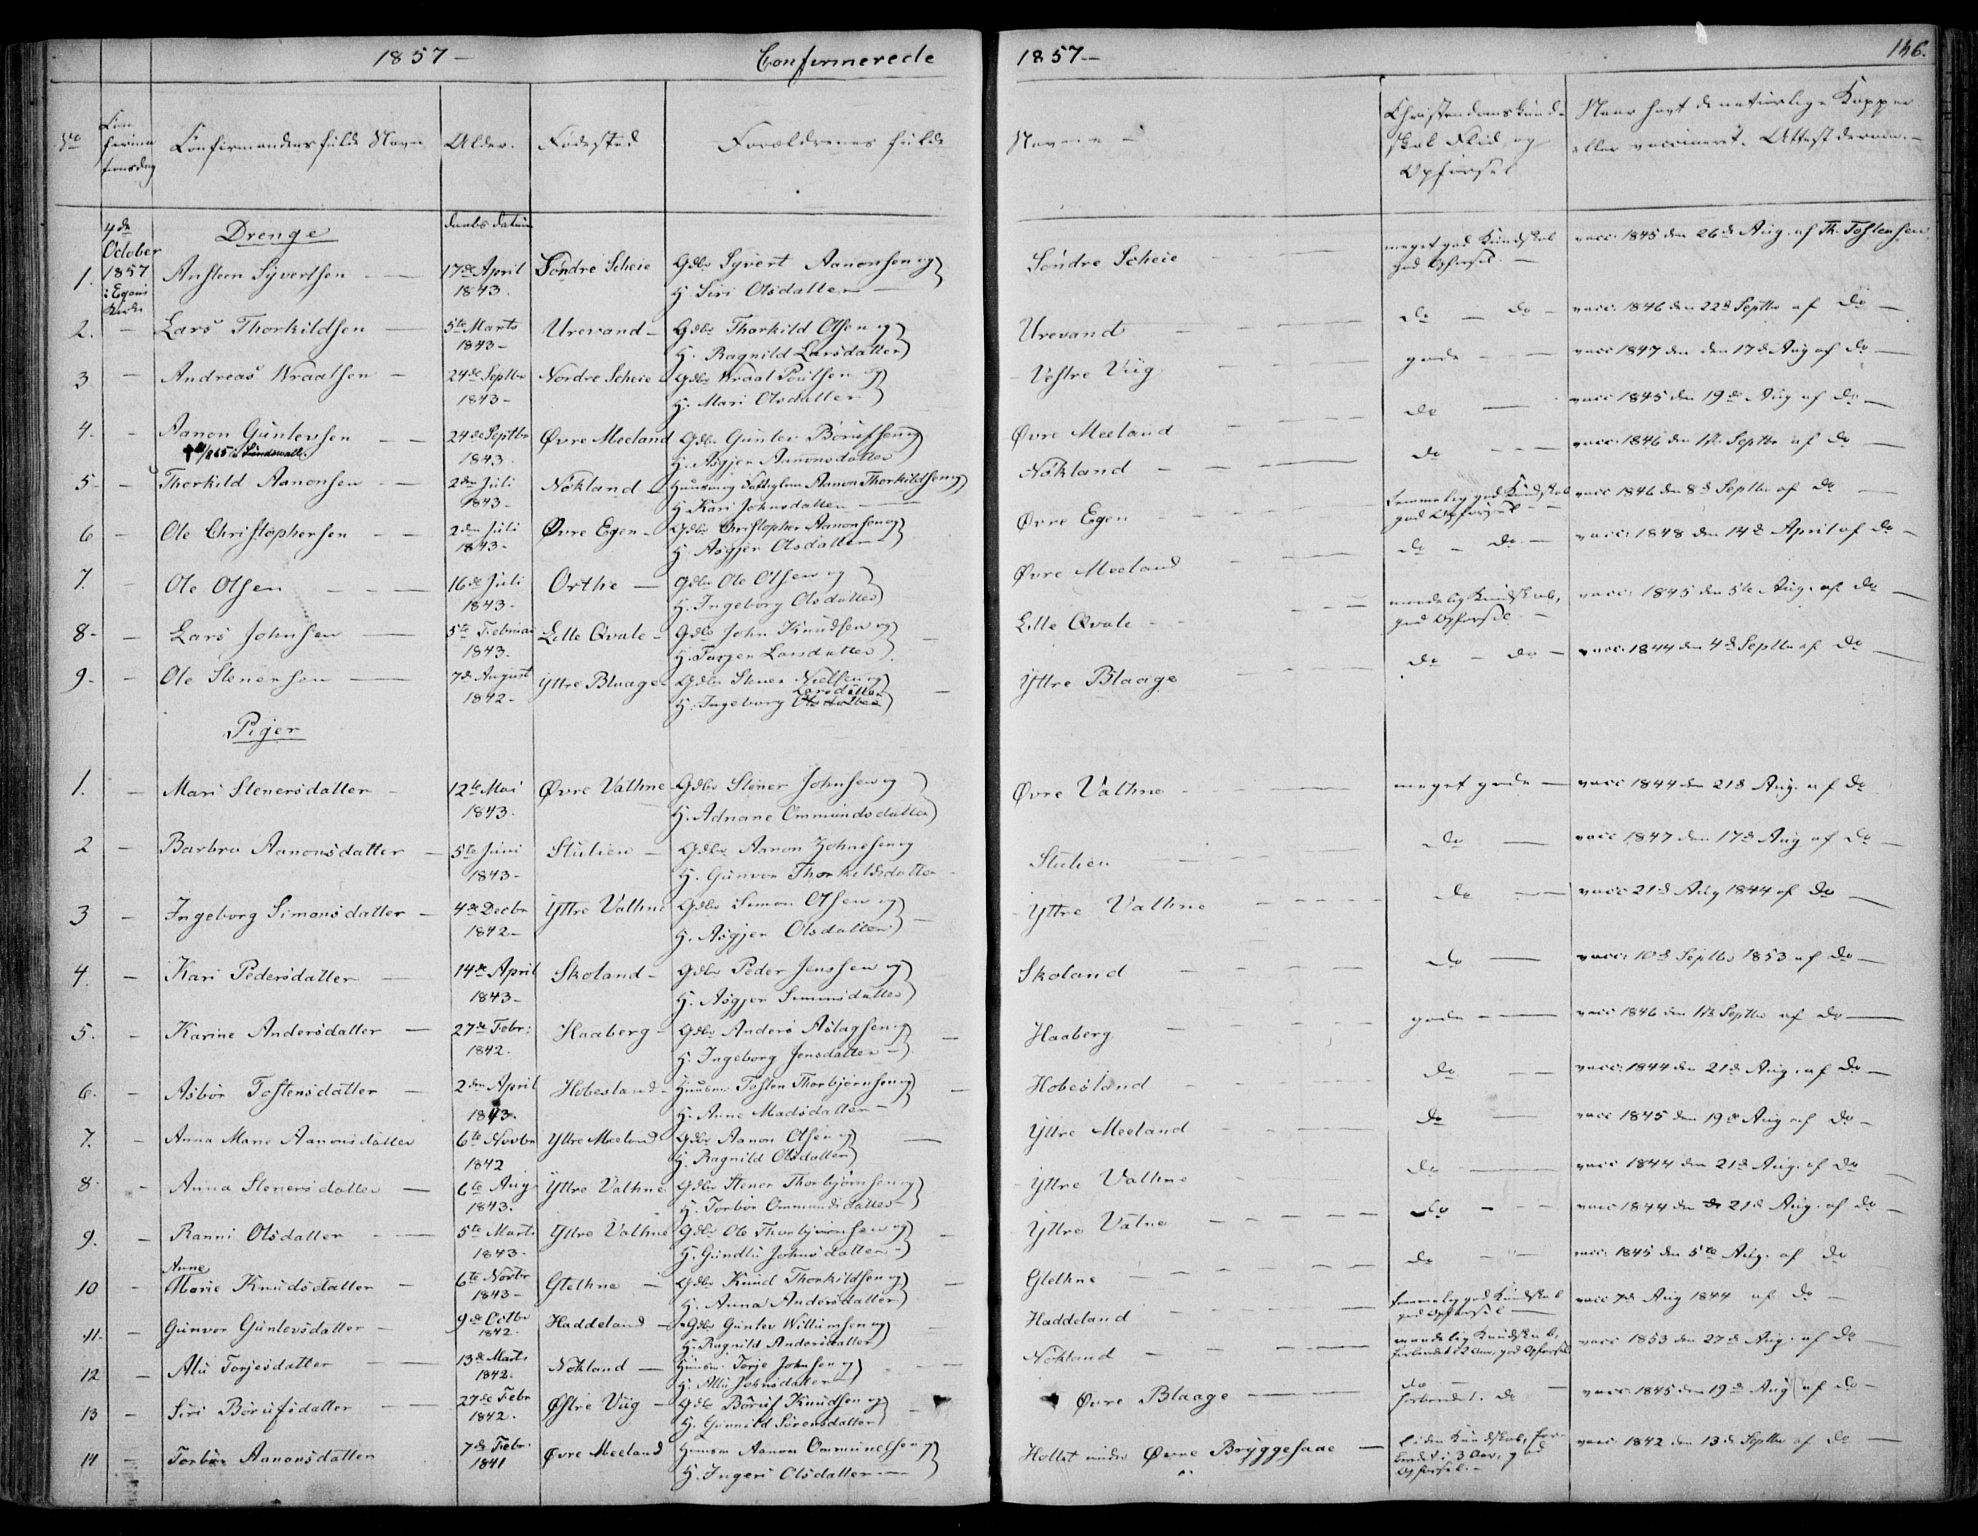 1857 — Confirmerede
1857 — 146.
No
Con
firma
tionsdag
Confirmandens fulde Navn
Alder.
Fødested
Forældrenes fulde
Navne —
Christendomskund-
skab Flid og
Opførsel
Naar havt de naturlige Kopper
eller vaccineret. Attest derom. —
4de
October
1857
i Egens
Kirke
Drenge
Daabs datum
1. Anstein Syvertsen — 17de April 1843. Söndre Scheie Gdbr Syvert Aanonsen og H. Siri Olsdatter — Söndre Scheie — meget god Kundskab god Opførsel. — vacc. 1845 den 26de Aug. af Th. Tostensen
2. — Lars Thorkildsen — 5te Marts 1843 — Urevand — Gdbr Thorkild Olsen og H. Ragnild Larsdatter Urevand do — do — vacc. 1846 den 22de Septbr af do —
3 — Andreas Wraalsen — 24de Septbr 1843 — Nordre Scheie Gdbr Wraal Poulsen og H. Mari Olsdatter Vestre Viig gode — vacc 1847 den den 17de Aug af do —
4. — Aanon Guntevsen — 24de Septbr 1843. Øvre Meeland Gdbr Guntev Börufsen og H. Asgjer Aanonsdatter Øvre Meeland do — vacc 1845 den 19de Aug af do —
5 — Thorkild Aanonsen — 2den Juli 1843 — Nökland — Aanon Thorkildsen og H. Kari Johnsdatter — Nökland — do — vacc. 1846 den Septbr af do —
6 — Ole Christophersen — 2den Juli 1843 — Øvre Egen — Gdbr Christopher Aanonsen og H. Asgjer Olsdatter — Øvre Egen temmelig god Kundskab god Opførsel — vacc 1846 den 8de Septbr af do —
7. — Ole Olsen — 16de Juli 1843 — Orthe — Gdbr Ole Olsen og H. Ingeborg Olsdatter Øvre Meeland do — do — vacc. 1848 den 14de April af do —
8 — Lars Johnsen — 5te Februar 1843. Lille Qvale — Gdbr John Knudsen og H. Larsdatter Lille Qvale — maadelig Kundskab, god Opførsel — vacc. 1845 den 5te Aug. af do —
9 — Ole Stenersen — 7de August 1842 — Yttre Blaage Gdbr Stener Nielsen og Larsdatter H. Ingeborg Olsdatter Yttre Blaage do — do — vacc. 1844 den 4de Septbr af do —
Piger
1. — Mari Stenersdatter — 12te Mai 1843. Øvre Vathne Gdbr Stener Johnsen og H. Adriane Ommundsdatter Øvre Vathne meget gode — vacc 1844 den 21de Aug. af do
2 — Barbro Aanonsdatter — 5te Juni 1843 — Stulien — Gdbr Aanon Johnesen og H. Gunvor Thorkildsdatter — Stulien do — vacc 1847 den 17de Aug af do —
3 — Ingeborg Simonsdatter — 4de Decbr 1842 — Yttre Vathne Gdbr Simon Olsen og H. Asgjer Olsdatter — Yttre Vathne do — vacc 21de Aug 1844 af do —
4. — Kari Pedersdatter — 14de April 1843 — Skoland — Gdbr Peder Jenssen og H. Asgjer Simonsdatter Skoland do — vacc: 10de Septbr 1853 af do —
5. — Karine Andersdatter — 27de Febr: 1842. Haaberg — Gdbr Anders Aslagsen og H. Ingeborg Jensdatter — Haaberg gode — vacc 1846 den Septbr af do —
6. — Asbor Tostensdatter — 2den April 1843. Hobesland — Huusm. Tosten Thorbjørnsen og H. Anne Madsdatter — Hobesland do — vacc. 1844 den 21de Aug. af do —
7. — Anna Marie Aanonsdatter 6te Novbr 1842 Yttre Meeland Gdbr Aanon Olsen og H. Ragnild Olsdatter Yttre Meeland do — vacc 1845 den 19de Aug af do —
8 — Anna Stenersdatter — 6te Aug. 1843. Yttre Vathne Gdbr Stener Thorbjørnsen og H. Torbor Ommundsdatter — Yttre Vathne do — vacc 1844 den 21de Aug. af do —
9. — Ranni Olsdatter — 5te Marts 1843. Yttre Vathne Gdbr Ole Thorbjörnsen og H. Gundlu Johnsdatter — Yttre Vatne do — vacc 1844 den 21de Aug. af do —
Anne
10 — Marie Knudsdatter — 6te Novbr 1843 — Glethne — Gdbr Knud Thorkildsen og H. Anna Andersdatter Glethne do — vacc. 1845 den 5te Aug. af do
11 — Gunvor Guntevsdatter — 9de Octbr 1842. Haddeland — Gdbr Guntev Willumsen og H. Ragnild Andersdatter Haddeland temmelig god Kundskab god Opførsel — vacc 7de Aug 1844 af do —
12 — Alu Torjesdatter — 13de Marts 1842. Nökland — Huusm. Torje Johnsen og H. Allu Johnsdatter Nökland maadelig Kundskab, god Opførsel vacc. 1853 den 27de Aug. af do —
13 — Siri Börufsdatter — 27de Febr 1842. Østre Viig — Gdbr Böruf Knudsen og H. Gunnild Sörensdatter Øvre Blaage — do forberedet. do vacc. 1845 den 19de Aug af do —
14 — Torbör Aanonsdatter 7de Febr. 1841 Øvre Meeland Huusm Aanon Ommundsen og H. Ingeri Olsdatter — Hollet under Øvre Bryggesaae — liden Kundskab, forberedet i 3 Aar, god Opførsel. — vacc. 1842 den 13de Septbr af do —